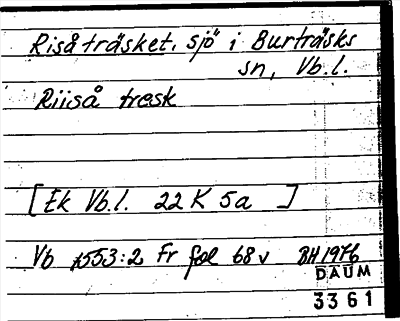 Riså träsket, sjö i Burträsks
sn, Vb.l.
Riiså tresk
[Ek Vb.l. 22 K 5a ]
Vb 1553:2 Fr fol 68 v BH 1976
DAUM
3361